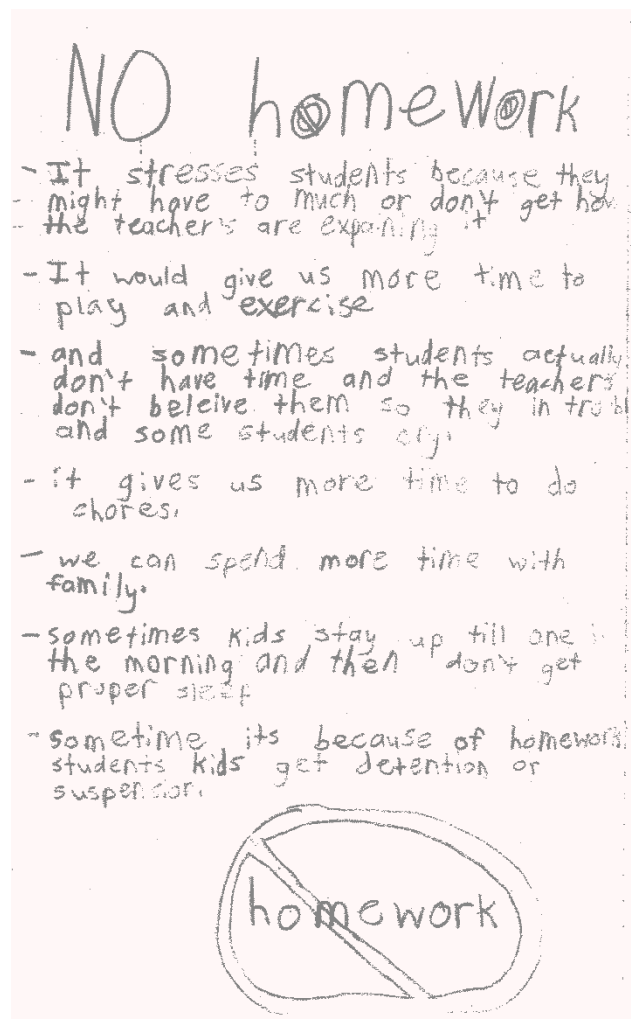 NO homework
- It stresses students because they
- might have to much or don't get how
- the teacher's are expaining it
- It would give us more time to
play and exercise
- and sometimes students actually
don't have time and the teachers
don't beleive them so they in
and some students cry.
- it gives us more time to do
chores.
- we can spend more time with
family.
- sometimes kids stay up till one
the morning and then don't get
proper sleep
- sometime its because of homework
students kids get detention or
suspension.
homework